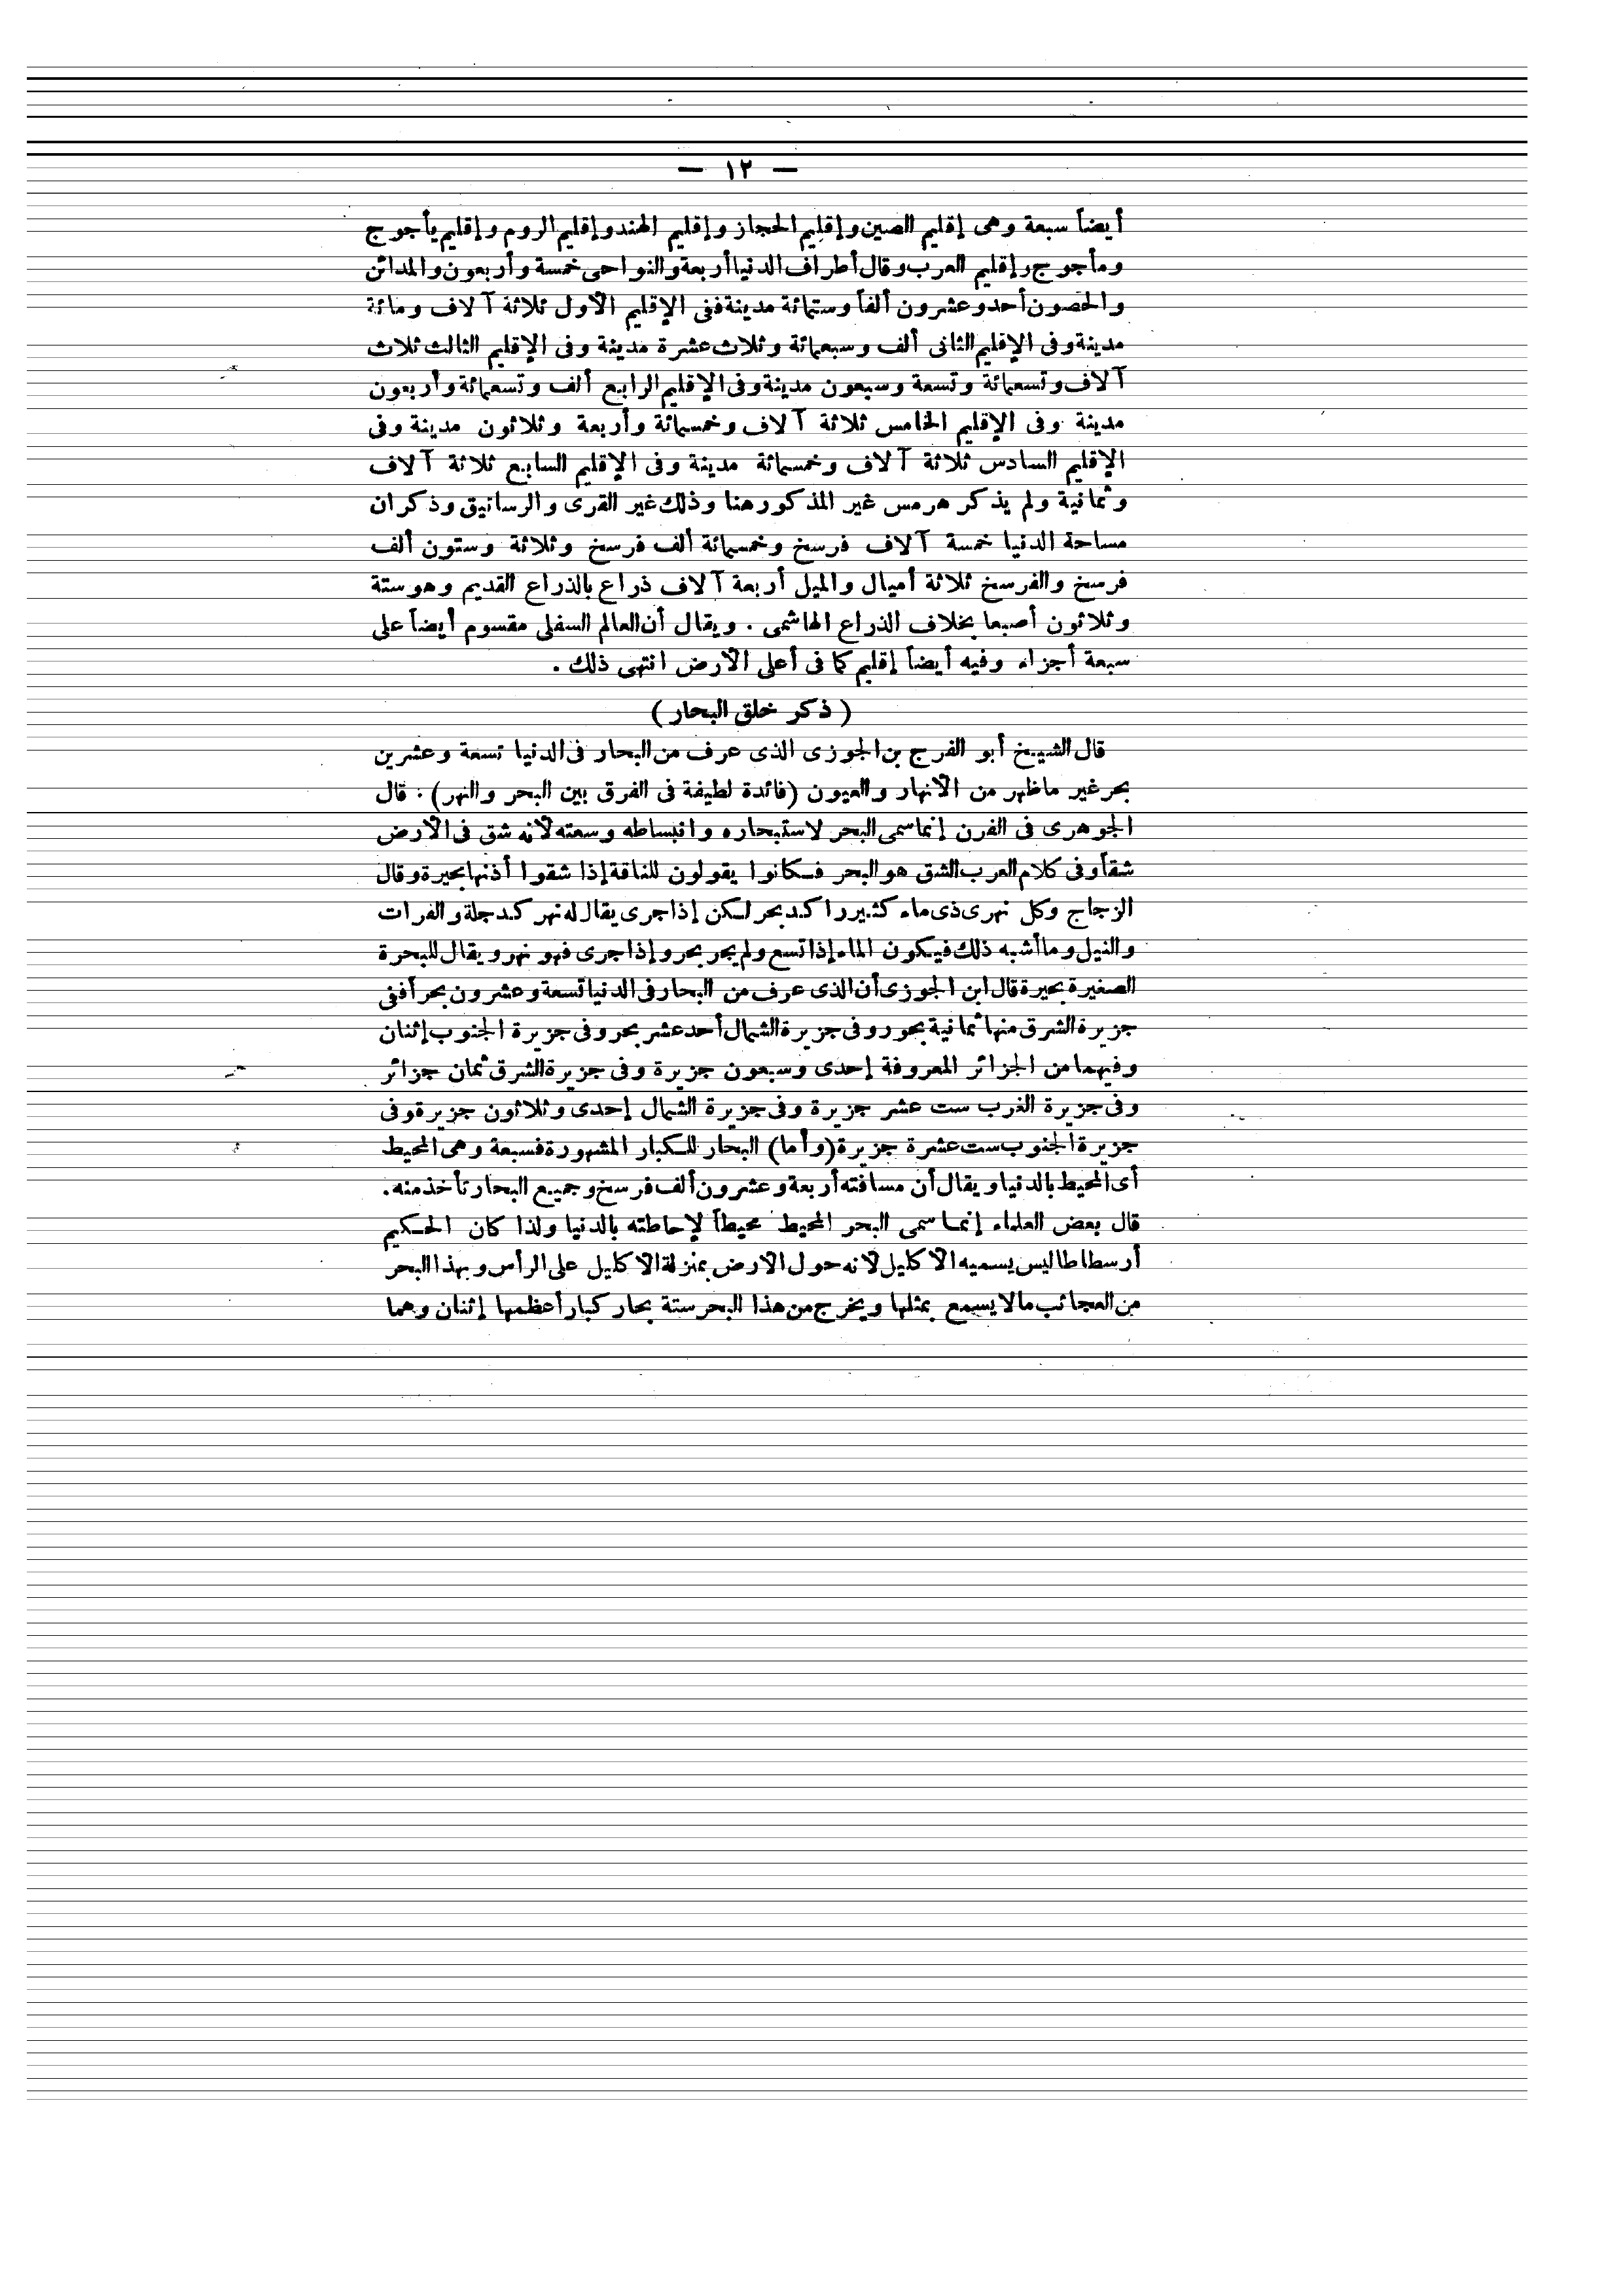 — ١٢ —
أيضاً سبعة وهى إقليم الصين وإقليم الحجاز وإقليم الهند وإقليم الروم وإقليم يأجوج
ومأجوج وإقليم العرب وقال أطراف الدنيا أربعة والنواحى خمسة وأربعون والمدائن
والحصون أحد وعشرون ألفاً وستمائة مدينة ففى الإقليم الأول ثلاثة آلاف ومائة
مدينة وفى الإقليم الثانى ألف وسبعمائة وثلاث عشرة مدينة وفى الإقليم الثالث ثلاث
آلاف وتسعمائة وتسعة وسبعون مدينة وفى الإقليم الرابع ألف وتسعمائة وأربعون
مدينة وفى الإقليم الخامس ثلاثة آلاف وخمسمائة وأربعة وثلاثون مدينة وفى
الإقليم السادس ثلاثة آلاف وخمسمائة مدينة وفى الإقليم السابع ثلاثة آلاف
وثمانية ولم يذكر هرمس غير المذكور هنا وذلك غير القرى والرساتيق وذكر ان
مساحة الدنيا خمسة آلاف فرسخ وخمسمائة ألف فرسخ وثلاثة وستون ألف
فرسخ والفرسخ ثلاثة أميال والميل أربعة آلاف ذراع بالذراع القديم وهو ستة
وثلاثون أصبعا بخلاف الذراع الهاشمى . ويقال أن العالم السفلى مقسوم أيضاً على
سبعة أجزاء وفيه أيضاً إقليم كما فى أعلى الأرض انتهى ذلك .
( ذكر خلق البحار )
قال الشيخ أبو الفرج بن الجوزى الذى عرف من البحار فى الدنيا تسعة وعشرين
بحر غير ماظهر من الأنهار والعيون (فائدة لطيفة فى الفرق بين البحر والنهر) : قال
الجوهرى فى الفرن إنما سمى البحر لاستبحاره وانبساطه وسعته لأنه شق فى الأرض
شقاً وفى كلام العرب الشق هو البحر فكانوا يقولون للناقة إذا شقوا أذنها بحيرة وقال
الزجاج وكل نهرى ذى ماء كثير راكد بحر لكن إذا جرى يقال له نهر كدجلة والفرات
والنيل وما أشبه ذلك فيكون الماء إذا تسع ولم يجر بحر وإذا جرى فهو نهر ويقال للبحرة
الصغيرة بحيرة قال ابن الجوزى أن الذى عرف من البحار فى الدنيا تسعة وعشرون بحراً ففى
جزيرة الشرق منها ثمانية بحور وفى جزيرة الشمال أحد عشر بحر وفى جزيرة الجنوب إثنان
وفيهما من الجزائر المعروفة إحدى وسبعون جزيرة وفى جزيرة الشرق ثمان جزائر
وفى جزيرة الغرب ست عشر جزيرة وفى جزيرة الشمال إحدى وثلاثون جزيرة وفى
جزيرة الجنوب ست عشرة جزيرة (وأما) البحار للكبار المشهورة فسبعة وهى المحيط
أى المحيط بالدنيا ويقال أن مسافته أربعة وعشرون ألف فرسخ وجميع البحار تأخذ منه .
قال بعض العلماء إنما سمى البحر المحيط محيطاً لإحاطته بالدنيا ولذا كان الحكيم
أرسطاطاليس يسميه الاكليل لأنه حول الارض بمنزلة الاكليل على الرأس وبهذا البحر
من العجائب مالا يسمع بمثلها ويخرج من هذا البحر ستة بحار كبار أعظمها إثنان وهما